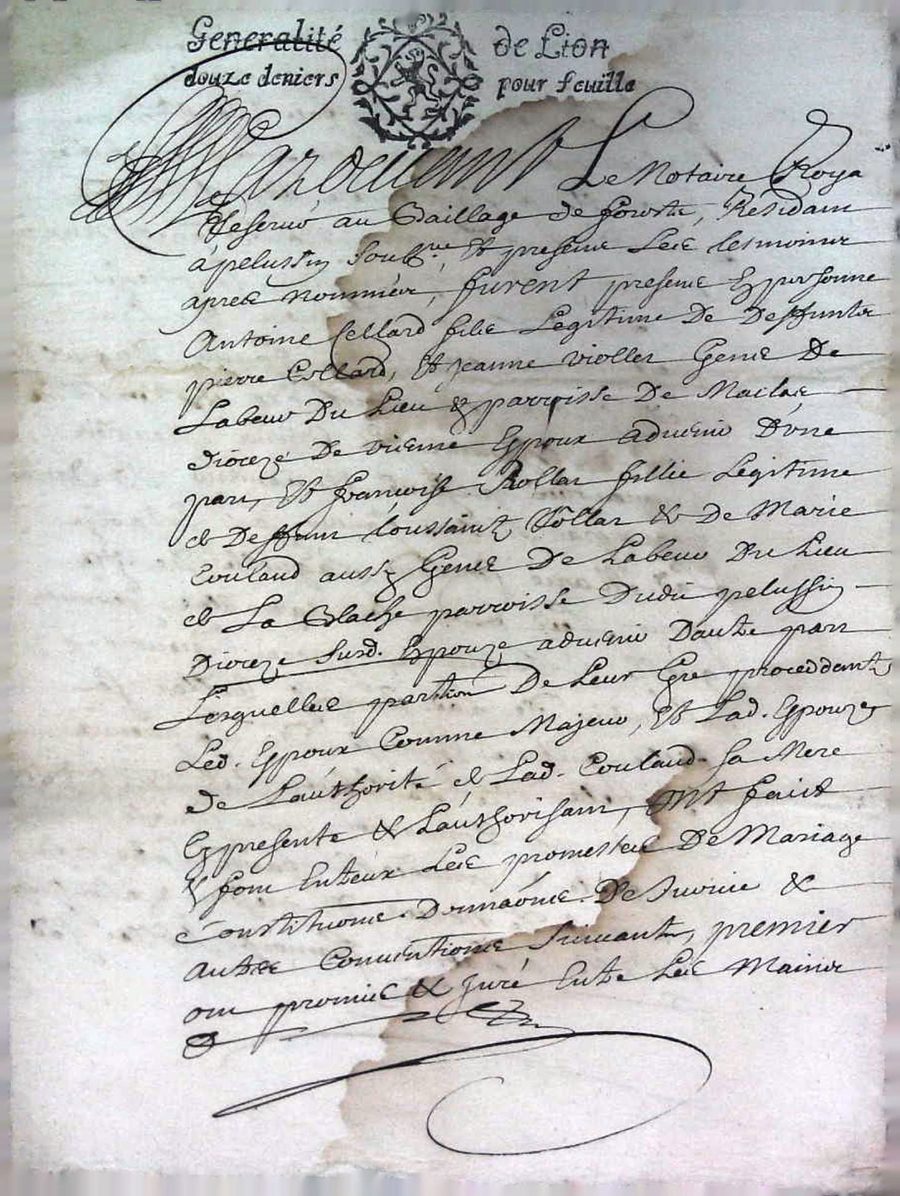 Generalité de Lion
douze deniers pour feuille
Pardevant Le Notaire Roya
Reservé au Baillage de forestz, Residam
a pelussin soubne, Et presents Les tesmoins
apres nommés, furent presens En personne
Antoine Cellard fils Legitime De Deffunts
pierre Cellard, Et Jeanne viollet Gens De
Labeur Du Lieu & parroisse De Maclas
dioceze De vienne Epoux advenir D'vne
part, Et francoise Rollat fillie Legitime
de Deffunt toussainct Rollat & De Marie
Couland aussy Gens De Labeur Du Lieu
de La parroisse Dudit pelussin
Dioceze susd. Epouze advenir Dautre part
Lesquelles parties De Leur Gre proceddants
Led. Epoux Comme Majeur, Et Lad. Epouze
de Lauthorité de Lad. Couland sa Mere
Cy presente & Lauthorisant, ont faict
& font Entreux Les promesses De Mariage
Constitutions Donnaõns De survie &
autres Conventions suivants, premier
ont promis & Juré Entre Les Mains